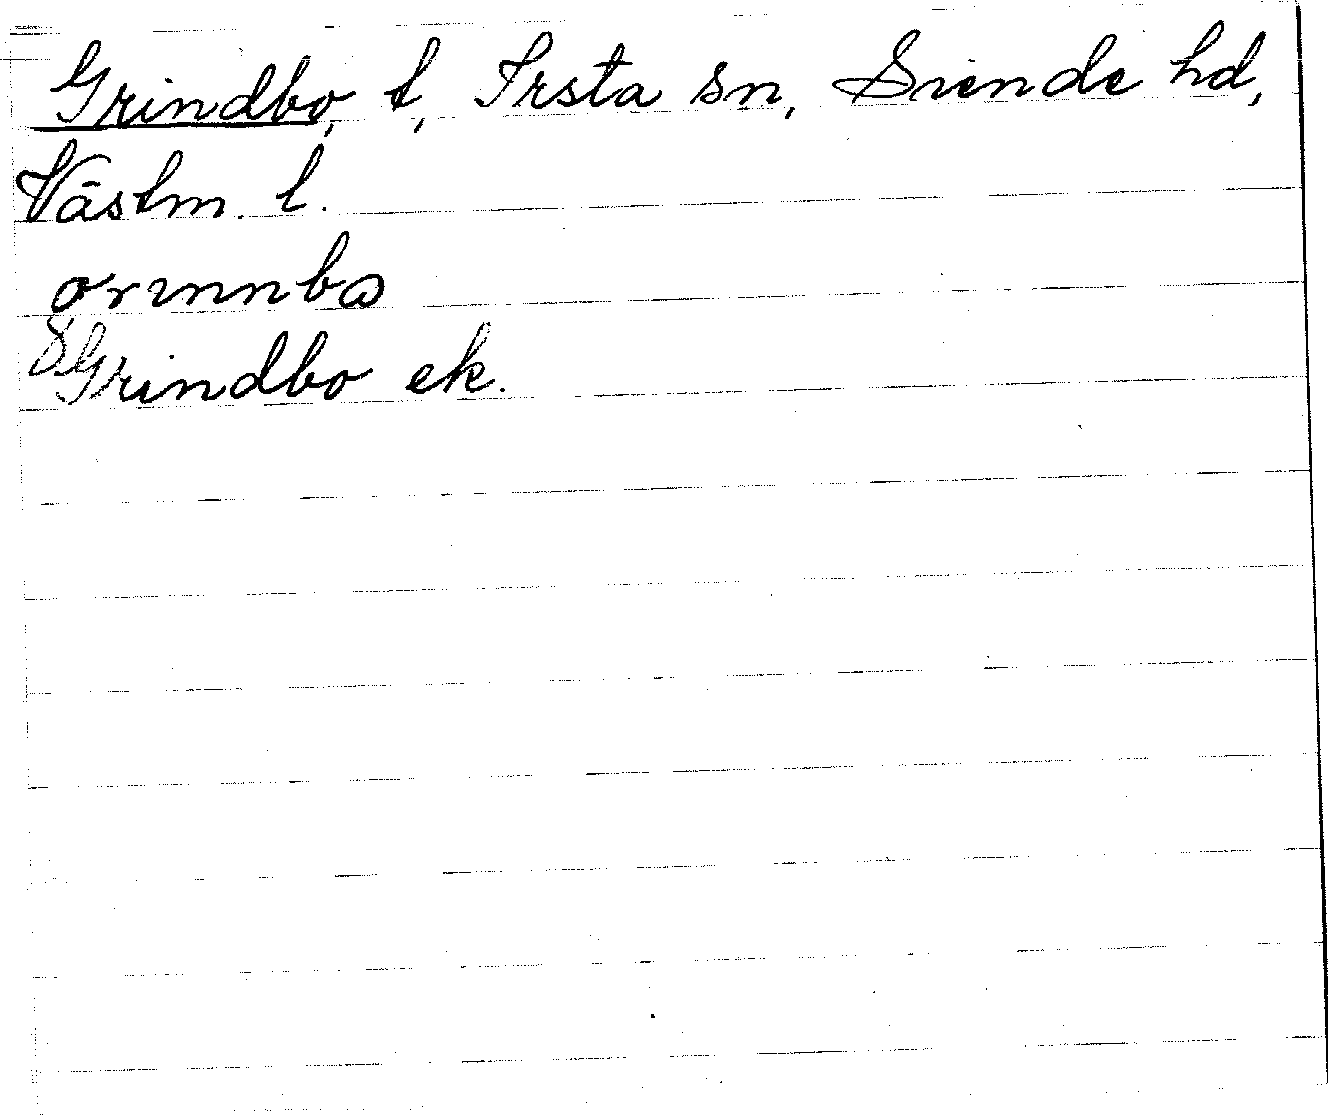 Grindbo, t, Irsta sn, Siende hd,
Västm. l.
grinnbω
Grindbo ek.